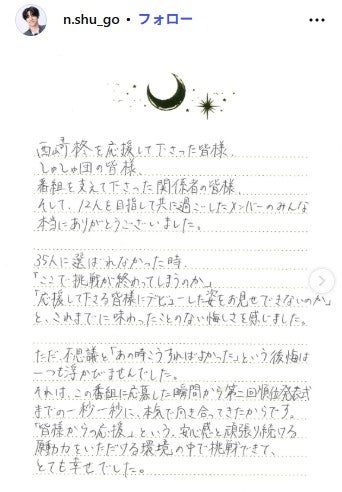 n.shu_go • フォロー
西﨑柊を応援して下さった皆様、
しゅしゅ団の皆様、
番組を支えて下さった関係者の皆様、
そして、12人を目指して共に過ごしたメンバーのみんな
本当にありがとうございました。
35人に選ばれなかった時、
「ここで挑戦が終わってしまうのか」
「応援して下さる皆様にデビューした姿をお見せできないのか」
と、これまでに味わったことのない悔しさを感じました。
ただ、不思議と「あの時こうすればよかった」という後悔は
一つも浮かびませんでした。
それは、この番組に応募した瞬間から第二回順位発表式
までの一秒一秒に、本気で向き合ってきたからです。
「皆様からの応援」という、安心感と頑張り続ける
原動力をいただける環境の中で挑戦できて、
とても幸せでした。